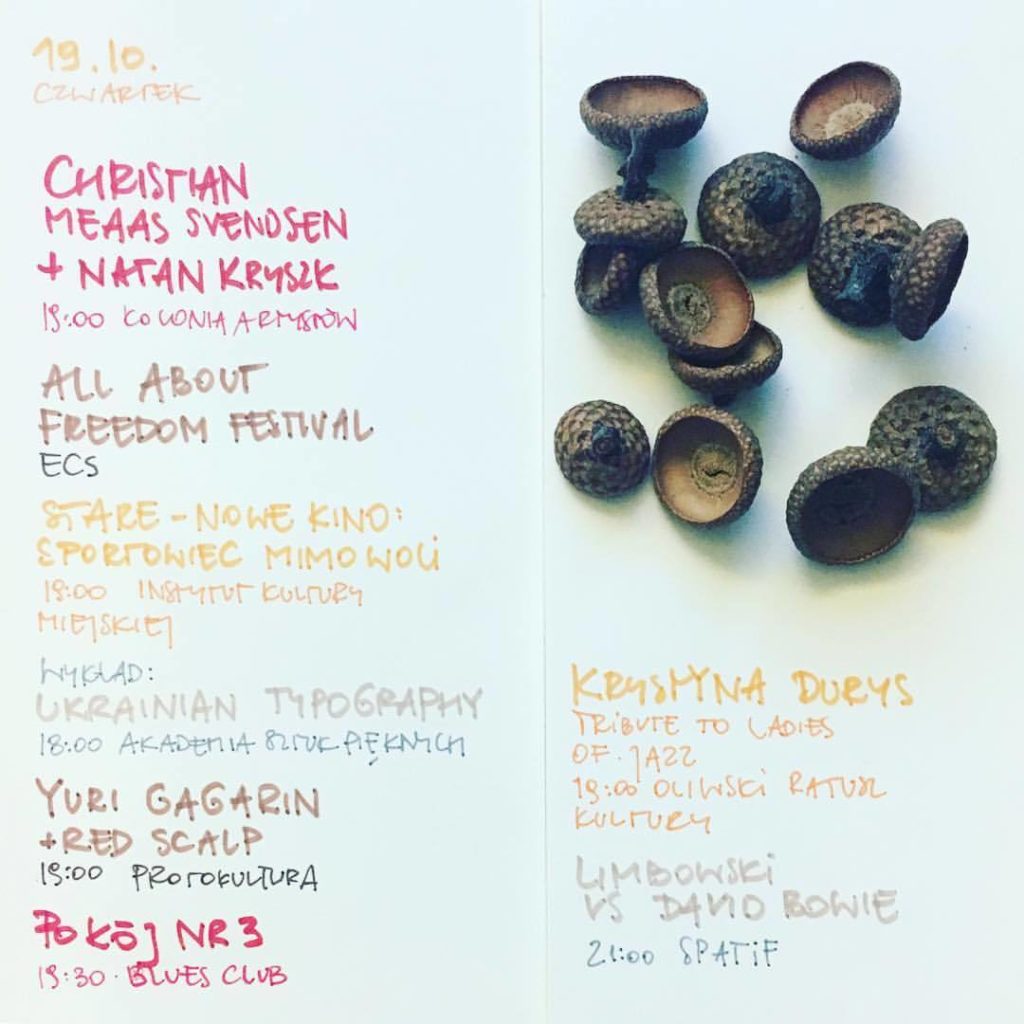 19.10.
CZWARTEK
CHRISTIAN
MEAAS SVENDSEN
+ NATAN KRYSZK
19:00 KOLONIA ARTYSTÓW
ALL ABOUT
FREEDOM FESTIVAL
ECS
STARE-NOWE KINO:
SPORTOWIEC MIMO WOLI
19:00 INSTYTUT KULTURY
MIEJSKIEJ
WYKŁAD:
UKRAINIAN TYPOGRAPHY
18:00 AKADEMIA SZTUK PIĘKNYCH
YURI GAGARIN
+RED SCALP
19:00 PROTOKULTURA
POKÓJ NR 3
19:30 · BLUES CLUB
KRYSTYNA DURYS
TRIBUTE TO LADIES
OF JAZZ
19:00 OLIWSKI RATUSZ
KULTURY
LIMBOWSKI
VS DAVID BOWIE
21:00 SPATiF